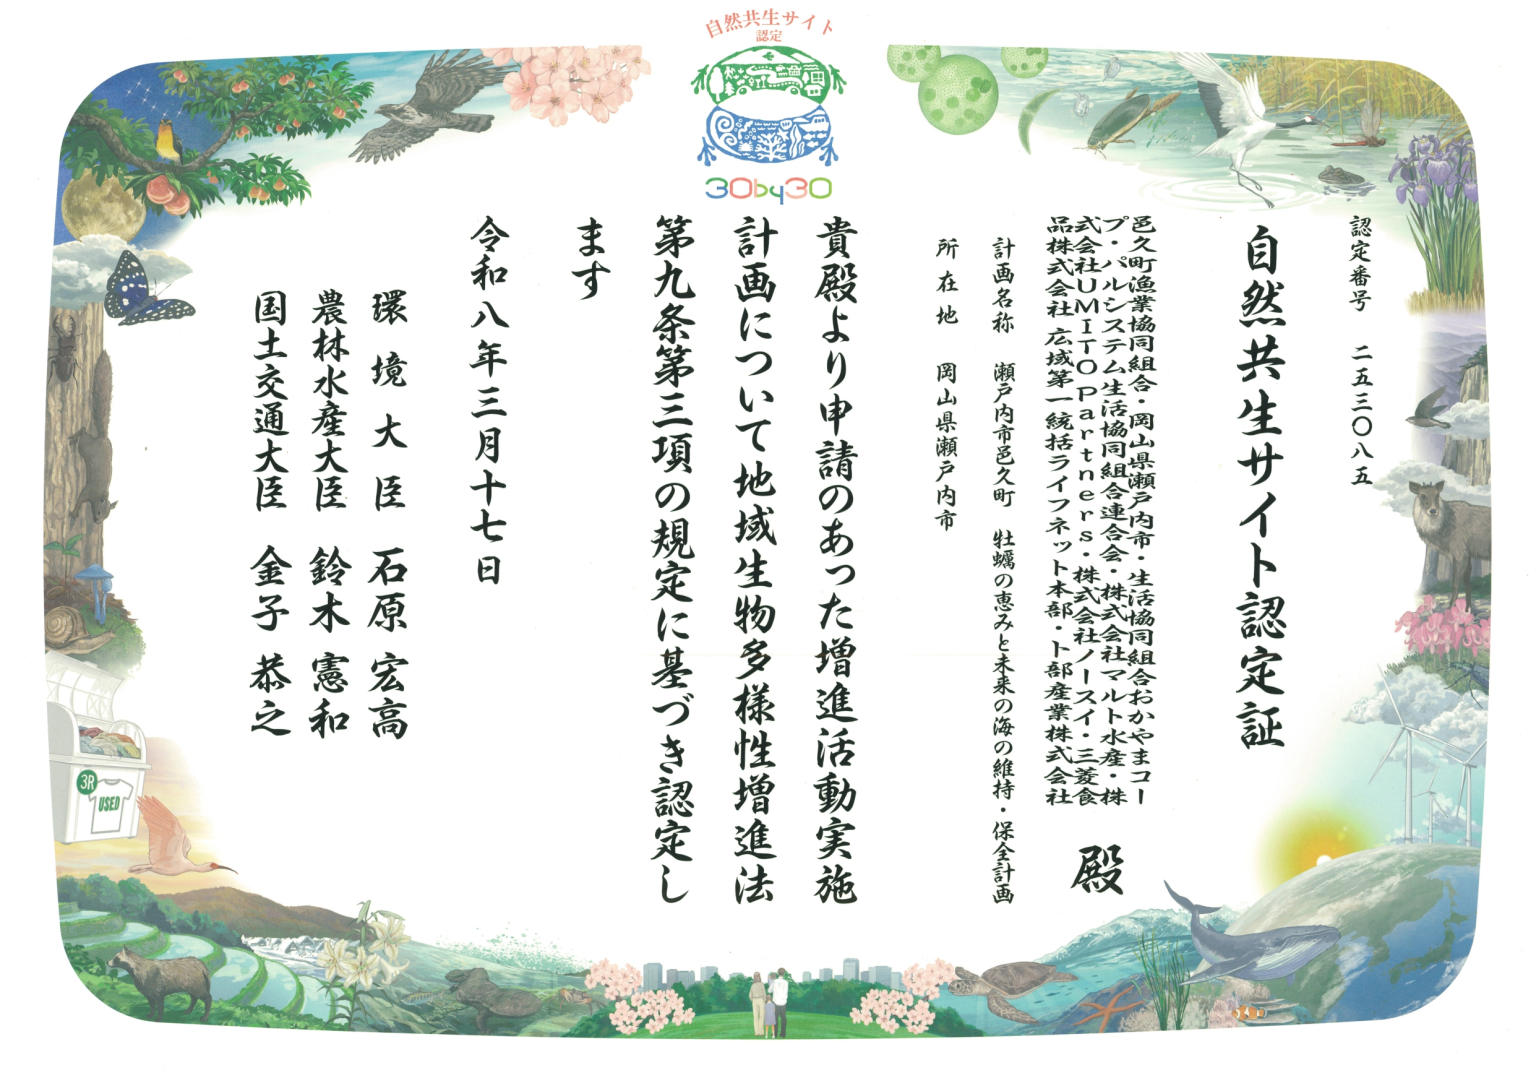 自然共生サイト
認定
30by30
認定番号　二五三〇八五
自然共生サイト認定証
邑久町漁業協同組合・岡山県瀬戸内市・生活協同組合おかやまコー
プ・パルシステム生活協同組合連合会・株式会社マルト水産・株
式会社UMITO Partners・株式会社ノースイ・三菱食
品株式会社 広域第一統括ライフネット本部・卜部産業株式会社
殿
計画名称　瀬戸内市邑久町　牡蠣の恵みと未来の海の維持・保全計画
所在地　岡山県瀬戸内市
貴殿より申請のあった増進活動実施
計画について地域生物多様性増進法
第九条第三項の規定に基づき認定し
ます
令和八年三月十七日
環境大臣　石原　宏高
農林水産大臣　鈴木　憲和
国土交通大臣　金子　恭之
3R
USED